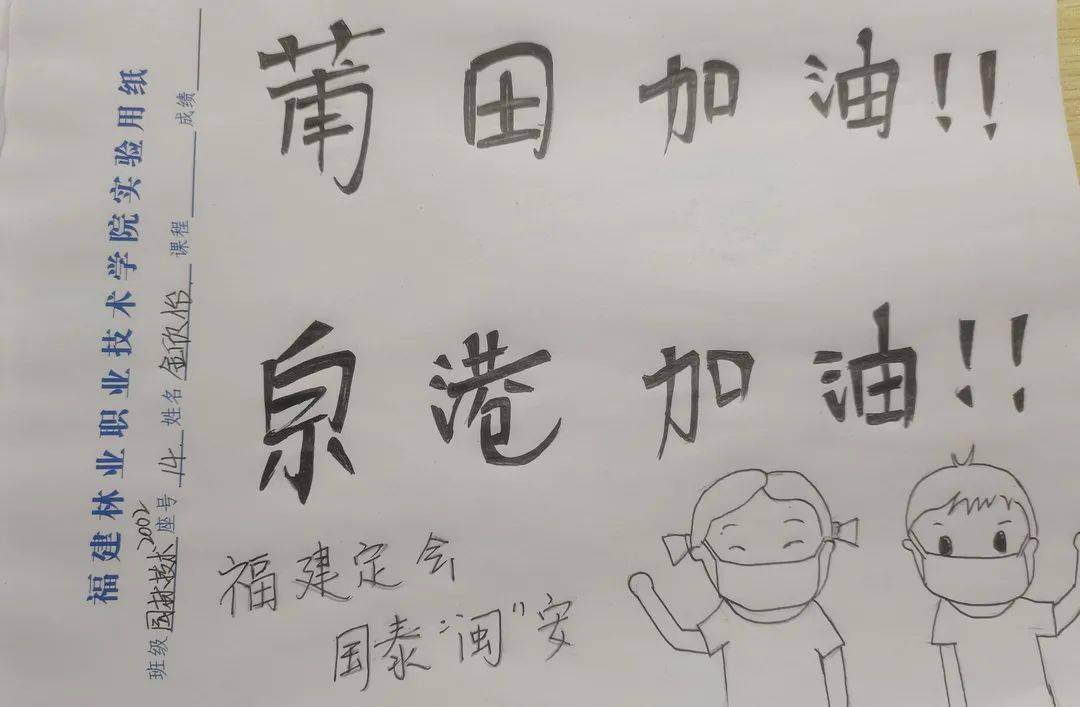 莆田加油!!
泉港加油!!
福建定会
国泰"闽"安
福建林业职业技术学院实验用纸
班级园林技术2002座号14姓名金欣怡课程 成绩